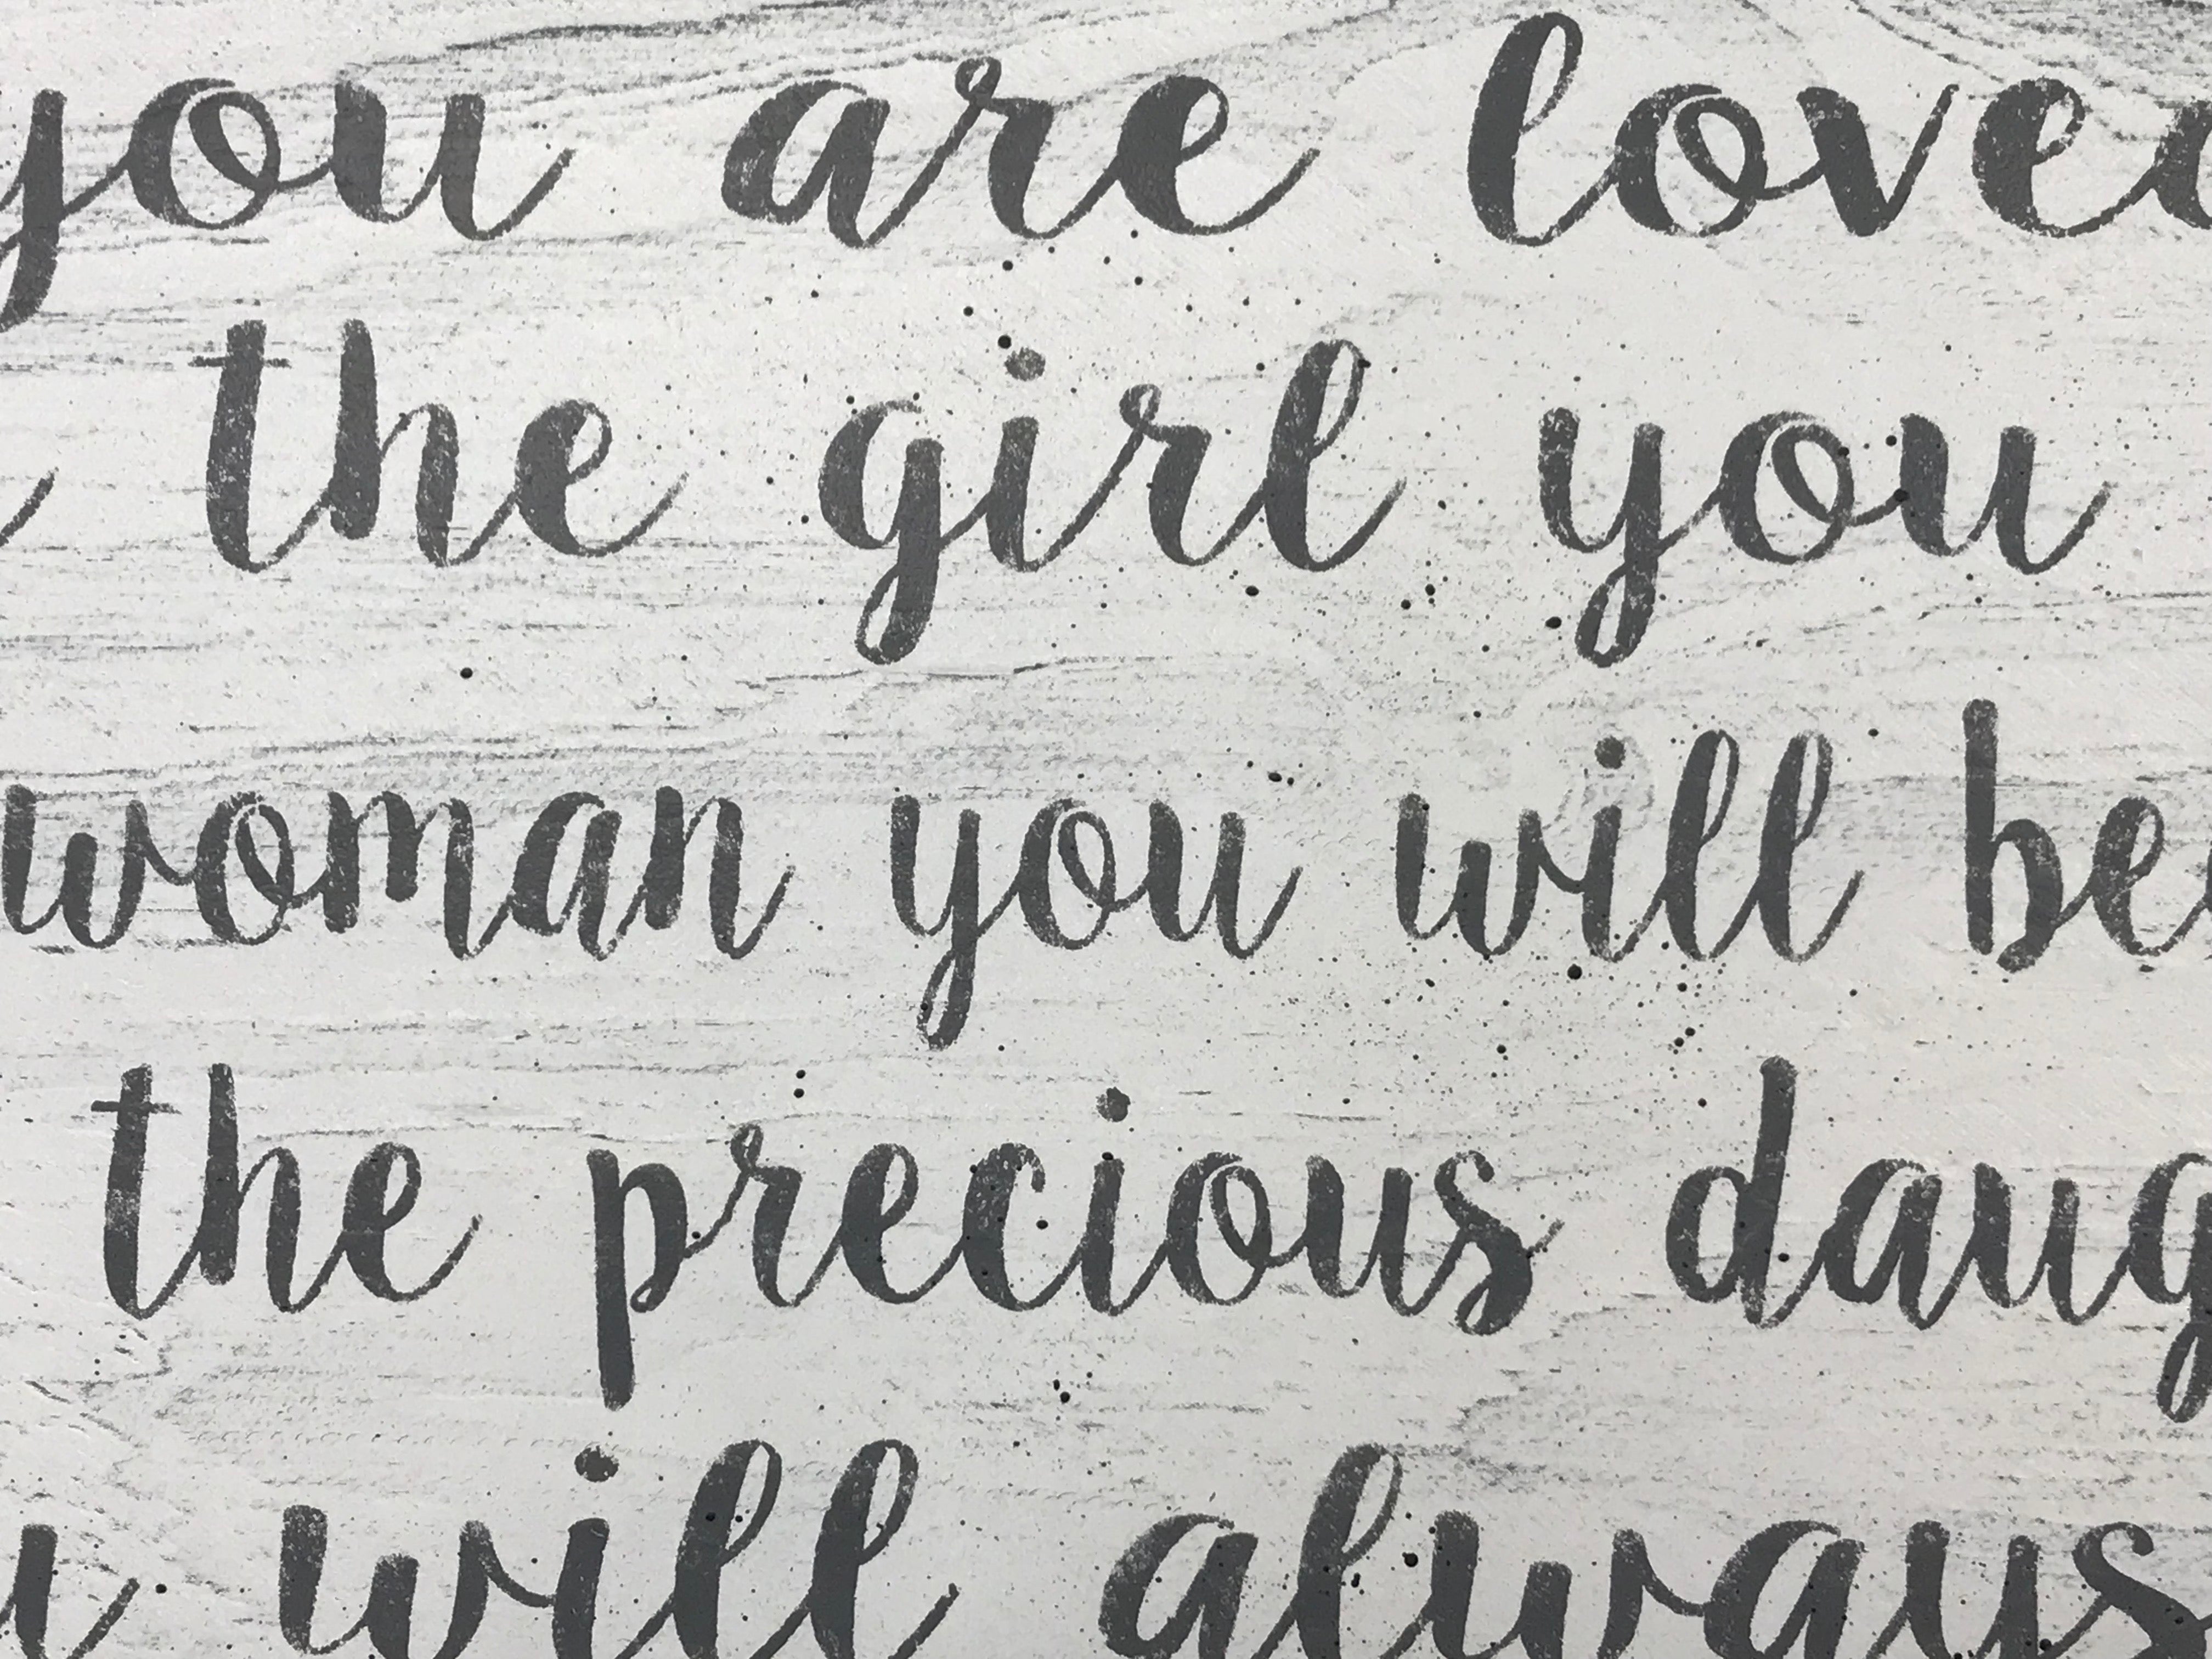 you are loved
the girl you
woman you will be
the precious daug
will always